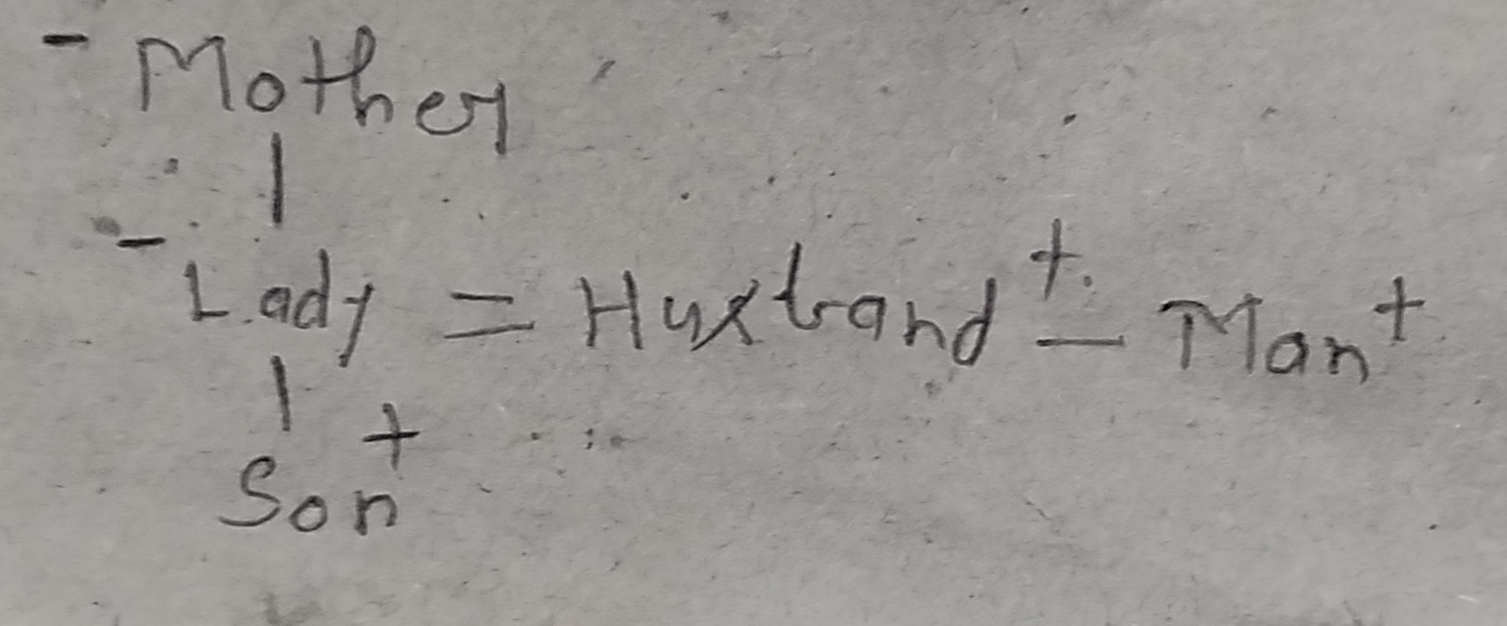 - Mother
|
- Lady = Husband + - Man +
|
Son +